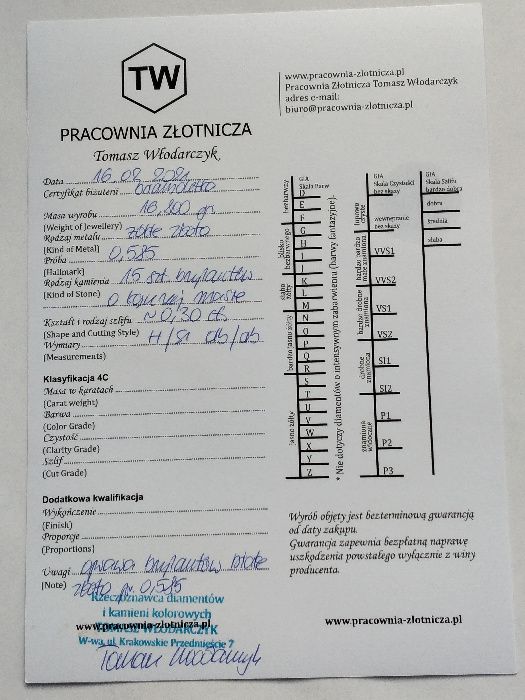 TW
PRACOWNIA ZŁOTNICZA
Tomasz Włodarczyk
www.pracownia-zlotnicza.pl
Pracownia Złotnicza Tomasz Włodarczyk
adres e-mail:
biuro@pracownia-zlotnicza.pl
Data 16.02.2021
Certyfikat biżuterii
Masa wyrobu gr.
(Weight of Jewellery)
Rodzaj metalu żółte złoto
(Kind of Metal)
Próba 0,585
(Hallmark)
Rodzaj kamienia 15 szt. brylantów
(Kind of Stone) o łącznej masie
Kształt i rodzaj szlifu ~0,30 ct.
(Shape and Cutting Style)
Wymiary H/SI db/db
(Measurements)
Klasyfikacja 4C
Masa w karatach
(Carat weight)
Barwa
(Color Grade)
Czystość
(Clarity Grade)
Szlif
(Cut Grade)
Dodatkowa kwalifikacja
Wykończenie
(Finish)
Proporcje
(Proportions)
Uwagi oprawa brylantów białe
(Note) złoto pr. 0,585
Rzeczoznawca diamentów
i kamieni kolorowych
www.pracownia-zlotnicza.pl
TOMASZ WŁODARCZYK
W-wa, ul. Krakowskie Przedmieście 7
GIA
Skala Barw
bezbarwny
D
E
F
blisko bezbarwnego
G
H
I
J
słabo żółty
K
L
M
bardzo jasno żółty
N
O
P
Q
R
jasno żółty
S
T
U
V
W
X
Y
Z
* Nie dotyczy diamentów o intensywnym zabarwieniu (barwy fantazyjne).
GIA
Skala Czystości
bez skazy
wewnętrznie
bez skazy
VVS1
VVS2
bardzo drobne
znamiona
VS1
VS2
drobne
znamiona
SI1
SI2
znamiona
widoczne
P1
P2
P3
GIA
Skala Szlifu
bardzo dobra
dobra
średnia
słaba
Wyrób objęty jest bezterminową gwarancją
od daty zakupu.
Gwarancja zapewnia bezpłatną naprawę
uszkodzenia powstałego wyłącznie z winy
producenta.
www.pracownia-zlotnicza.pl